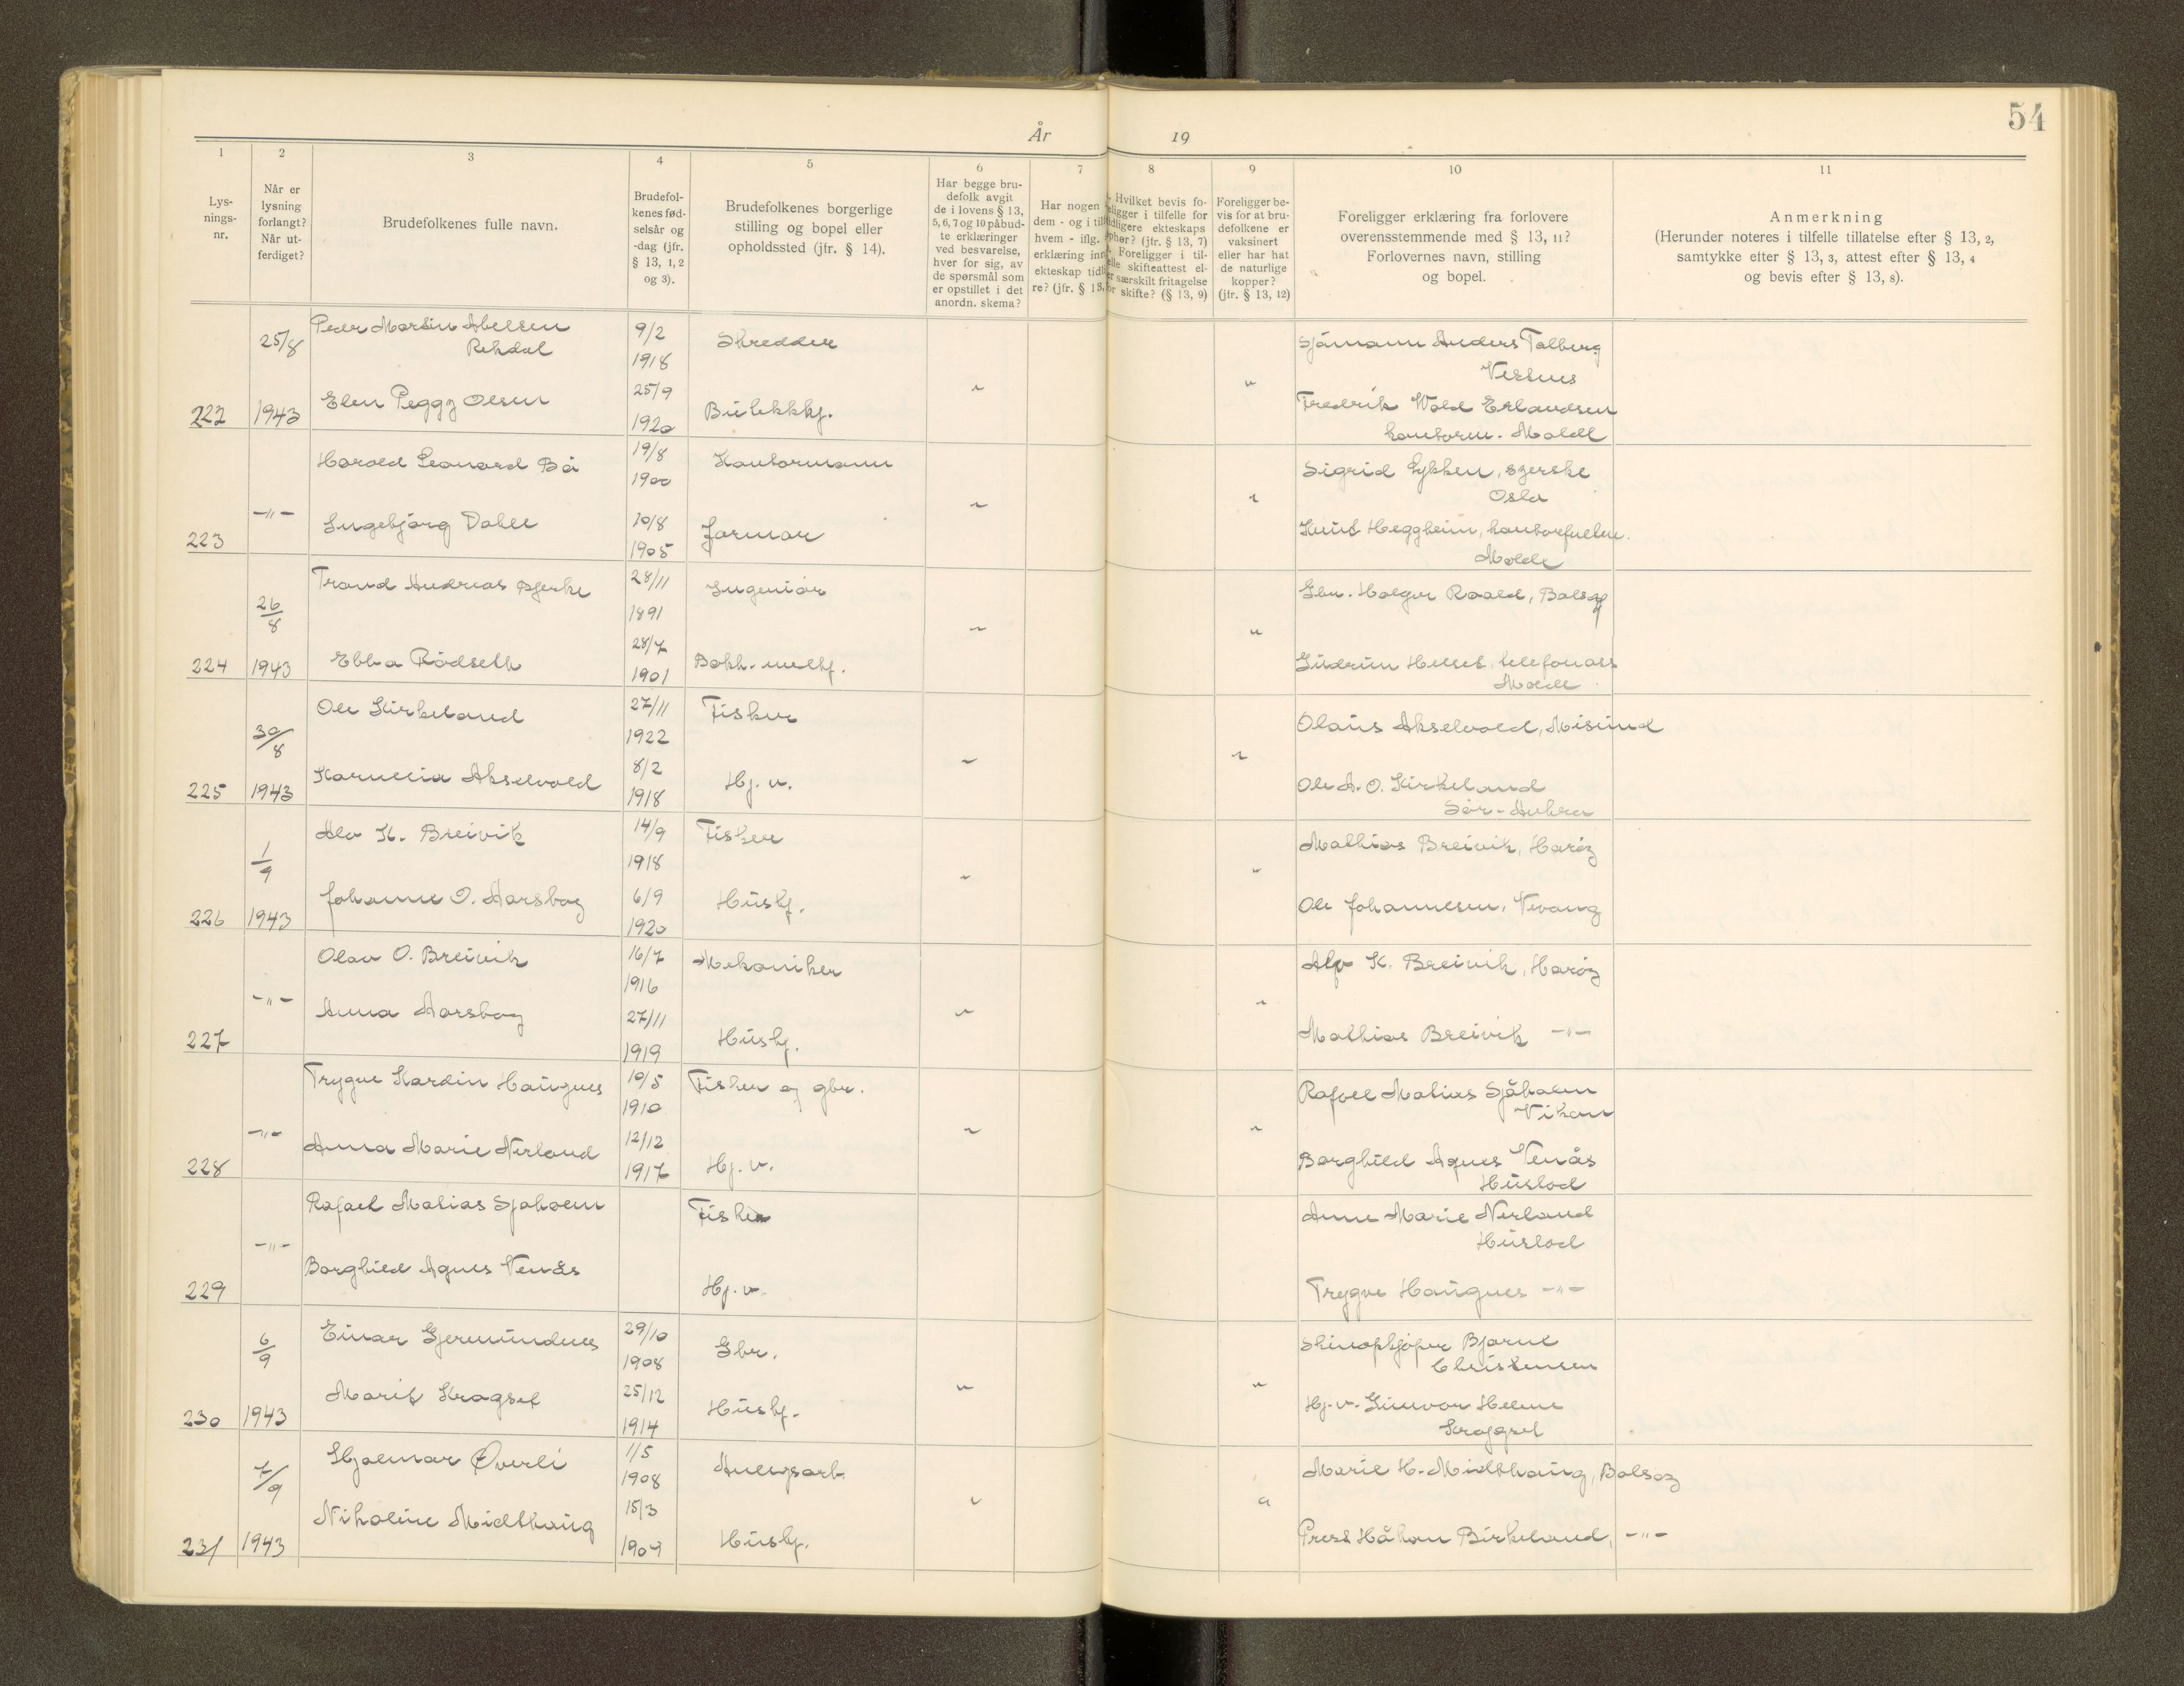 54
År 19
1 2 3 4 5 6 7 8 9 10 11
Lys-
nings-
nr.
Når er
lysning
forlangt?
Når ut-
ferdiget?
Brudefolkenes fulle navn.
Brudefol-
kenes fød-
selsår og
-dag (jfr.
§ 13, 1, 2
og 3).
Brudefolkenes borgerlige
stilling og bopel eller
opholdssted (jfr. § 14).
Har begge bru-
defolk avgit
de i lovens § 13,
5, 6, 7 og 10 påbud-
te erklæringer
ved besvarelse,
hver for sig, av
de spørsmål som
er opstillet i det
anordn. skema?
Har nogen
dem - og i til
hvem - iflg.
erklæring inn
ekteskap tidl
re? (jfr. § 13,
Hvilket bevis fo-
religger i tilfelle for
tidligere ekteskaps
ophør? (jfr. § 13, 7)
Foreligger i til-
elle skifteattest el-
er særskilt fritagelse
for skifte? (§ 13, 9)
Foreligger be-
vis for at bru-
defolkene er
vaksinert
eller har hat
de naturlige
kopper?
(jfr. § 13, 12)
Foreligger erklæring fra forlovere
overensstemmende med § 13, 11?
Forlovernes navn, stilling
og bopel.
Anmerkning
(Herunder noteres i tilfelle tillatelse efter § 13, 2,
samtykke efter § 13, 3, attest efter § 13, 4
og bevis efter § 13, 8).
25/8 Peer Martin Abelsen 9/2 Skredder Sjömann Anders Talberg
Rekdal 1918 Vestnes
Elen Peggy Olsen 25/9 " " Fredrik Wold Erlandsen
222 1943 1920 Butekkhj. kontorm. Molde
Harald Leonard Bö 19/8 Kontormann Sigrid Lykken, syerske
1900 Oslo
-"- Ingebjörg Dahle 10/8 Jormor " " Knut Heggheim, kontorfullm.
223 1905 Molde
Trond Andreas Bjerke 28/11 Ingeniör Gbr. Holger Roald, Bolsøy
26/8 1891 " "
28/7
224 1943 Ebba Rödseth 1901 Bokh.-medhj. Gudrun Helset, telefonass
Molde
Ole Kirkeland 27/11 Fisker Olaus Akselvold, Misund
30/8 1922 " "
225 1943 Kornelia Akselvold 8/2 1918 Hj. v. Ole A. O. Kirkeland
Sör-Aukra
Alv K. Breivik 14/9 Fisker Mathias Breivik, Harøy
1/9 1918 " "
226 1943 Johanne O. Aarsbog 6/9 1920 Hushj. Ole Johannesen, Vevang
Olav O. Breivik 16/7 Mekaniker Alv K. Breivik, Harøy
1916
-"- Anna Aarsbog 27/11 " " Mathias Breivik -"-
227 1919 Hushj.
Trygve Kardin Haugnes 10/5 Fisker og gbr. Rafael Matias Sjåholm
1910 Vikan
-"- Anna Marie Nerland 12/12 " " Borghild Agnes Venås
228 1917 Hj. v. Hustad
Rafael Matias Sjøholm Fisker Anne Marie Nerland
-"- Hustad
Borghild Agnes Venås
229 Hj. v. Trygve Haugnes -"-
6/9 Einar Gjermundnes 29/10 Gbr. Skinopkjöper Bjarne
1908 Christensen
Marit Kragset 25/12 " " Hj. v. Gunvor Helene
230 1943 1914 Hushj. Kragset
7/9 Hjalmar Øverli 1/5 Anlegsarb. Marie H. Midthaug, Bolsøy
1908
Nikoline Midthaug 15/3 " "
231 1943 1909 Hushj. Prest Håkon Birkeland, -"-